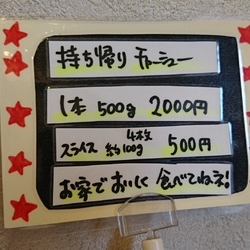 持ち帰り チャーシュー
1本 500g 2000円
スライス 4枚 約100g 500円
お家でおいしく食べてねェ!